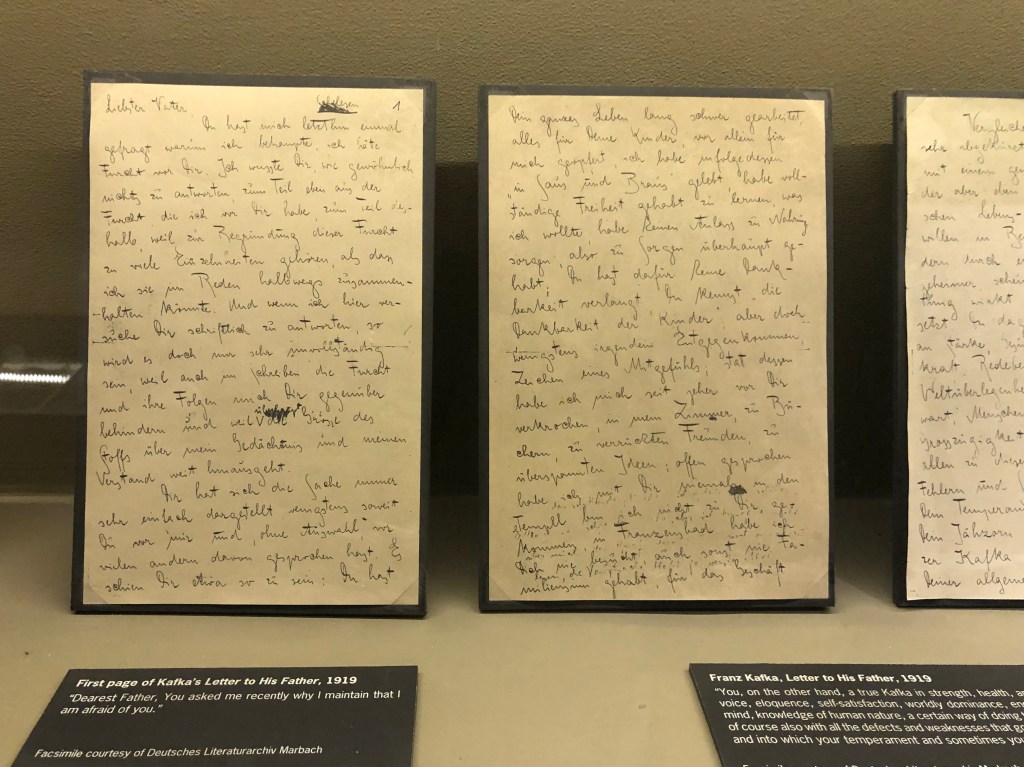 Liebster Vater
Schelesen 1
Du hast mich letzthin einmal
gefragt warum ich behaupte, ich hätte
Furcht vor Dir. Ich wusste Dir, wie gewöhnlich
nichts zu antworten, zum Teil eben aus der
Furcht die ich vor Dir habe, zum Teil des-
halb, weil zur Begründung dieser Furcht
zu viele Einzelnheiten gehören, als dass
ich sie im Reden halbwegs zusammen-
halten könnte. Und wenn ich hier ver-
suche Dir schriftlich zu antworten, so
wird es doch nur sehr unvollständig
sein, weil auch im Schreiben die Furcht
und ihre Folgen mich Dir gegenüber
behindern und weil die Grösse des
Stoffs über mein Gedächtnis und meinen
Verstand weit hinausgeht.
Dir hat sich die Sache immer
sehr einfach dargestellt wenigstens soweit
Du vor mir und, ohne Auswahl, vor
vielen andern davon gesprochen hast. Es
schien Dir etwa so zu sein: Du hast
Dein ganzes Leben lang schwer gearbeitet,
alles für Deine Kinder, vor allem für
mich geopfert, ich habe infolgedessen
"in Saus und Braus" gelebt habe voll-
ständige Freiheit gehabt zu lernen, was
ich wollte, habe keinen Anlass zu Nahrungs-
sorgen, also zu Sorgen überhaupt ge-
habt; Du hast dafür keine Dank-
barkeit verlangt Du kennst "die
Dankbarkeit der Kinder" aber doch
wenigstens irgendein Entgegenkommen,
Zeichen eines Mitgefühls; statt dessen
habe ich mich seit jeher vor Dir
verkrochen, in mein Zimmer, zu Bü-
chern, zu verrückten Freunden, zu
überspannten Ideen; offen gesprochen
habe ich mit Dir niemals in den
Tempel bin ich nicht zu Dir ge-
kommen, in Franzensbad habe ich
Dich nie besucht auch sonst nie Fa-
miliensinn gehabt, für das Geschäft
Vergleiche
sehr abgekürzt
mit einem
der aber
schen Lebens-
willen
geheimer
wirkt
an Stärke,
kraft, Redebe
Weltüberlegenheit
wart, Menschen
Grosszügigkeit
allen zu diesen
Fehlern und
Dein Temperam
Dein Jähzorn
zer Kafka
Deiner allgem
First page of Kafka's Letter to His Father, 1919
"Dearest Father, You asked me recently why I maintain that I
am afraid of you."
Facsimile courtesy of Deutsches Literaturarchiv Marbach
Franz Kafka, Letter to His Father, 1919
"You, on the other hand, a true Kafka in strength, health,
voice, eloquence, self-satisfaction, worldly dominance,
mind, knowledge of human nature, a certain way of doing
of course also with all the defects and weaknesses that
and into which your temperament and sometimes